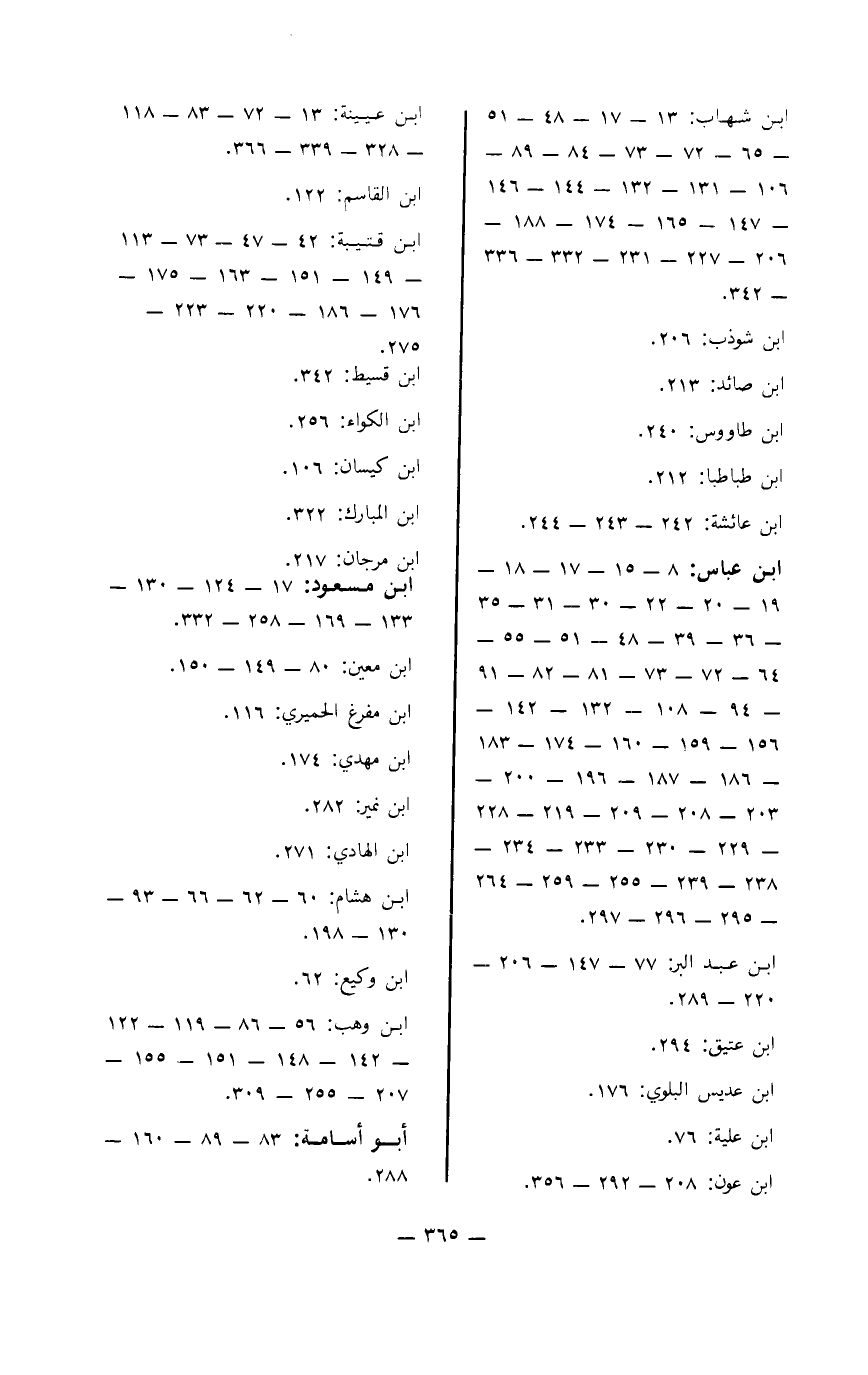 ابن شهاب: ١٣ — ١٧ — ٤٨ — ٥١
— ٦٥ — ٧٢ — ٧٣ — ٨٤ — ٨٩ —
١٠٦ — ١٣١ — ١٣٢ — ١٤٤ — ١٤٦
— ١٤٧ — ١٦٥ — ١٧٤ — ١٨٨ —
٢٠٦ — ٢٢٧ — ٢٣١ — ٣٣٢ — ٣٣٦
— ٣٤٢.
ابن شوذب: ٢٠٦.
ابن صائد: ٢١٣.
ابن طاووس: ٢٤٠.
ابن طباطبا: ٢١٢.
ابن عائشة: ٢٤٢ — ٢٤٣ — ٢٤٤.
ابن عباس: ٨ — ١٥ — ١٧ — ١٨ —
١٩ — ٢٠ — ٢٢ — ٣٠ — ٣١ — ٣٥
— ٣٦ — ٣٩ — ٤٨ — ٥١ — ٥٥ —
٦٤ — ٧٢ — ٧٣ — ٨١ — ٨٢ — ٩١
— ٩٤ — ١٠٨ — ١٣٢ — ١٤٢ —
١٥٦ — ١٥٩ — ١٦٠ — ١٧٤ — ١٨٣
— ١٨٦ — ١٨٧ — ١٩٦ — ٢٠٠ —
٢٠٣ — ٢٠٨ — ٢٠٩ — ٢١٩ — ٢٢٨
— ٢٢٩ — ٢٣٠ — ٢٣٣ — ٢٣٤ —
٢٣٨ — ٢٣٩ — ٢٥٥ — ٢٥٩ — ٢٦٤
— ٢٩٥ — ٢٩٦ — ٢٩٧.
ابن عبد البر: ٧٧ — ١٤٧ — ٢٠٦ —
٢٢٠ — ٢٨٩.
ابن عتيق: ٢٩٤.
ابن عديس البلوي: ١٧٦.
ابن علية: ٧٦.
ابن عون: ٢٠٨ — ٢٩٢ — ٣٥٦.
ابن عيينة: ١٣ — ٧٢ — ٨٣ — ١١٨
— ٣٢٨ — ٣٣٩ — ٣٦٦.
ابن القاسم: ١٢٢.
ابن قتيبة: ٤٢ — ٤٧ — ٧٣ — ١١٣
— ١٤٩ — ١٥١ — ١٦٣ — ١٧٥ —
١٧٦ — ١٨٦ — ٢٢٠ — ٢٢٣ —
٢٧٥.
ابن قسيط: ٣٤٢.
ابن الكواء: ٢٥٦.
ابن كيسان: ١٠٦.
ابن المبارك: ٣٢٢.
ابن مرجان: ٢١٧.
ابن مسعود: ١٧ — ١٢٤ — ١٣٠ —
١٣٣ — ١٦٩ — ٢٥٨ — ٣٣٢.
ابن معين: ٨٠ — ١٤٩ — ١٥٠.
ابن مفرغ الحميري: ١١٦.
ابن مهدي: ١٧٤.
ابن نمير: ٢٨٢.
ابن الهادي: ٢٧١.
ابن هشام: ٦٠ — ٦٢ — ٦٦ — ٩٣ —
١٣٠ — ١٩٨.
ابن وكيع: ٦٢.
ابن وهب: ٥٦ — ٨٦ — ١١٩ — ١٢٢
— ١٤٢ — ١٤٨ — ١٥١ — ١٥٥ —
٢٠٧ — ٢٥٥ — ٣٠٩.
أبو أسامة: ٨٣ — ٨٩ — ١٦٠ —
٢٨٨.
— ٣٦٥ —